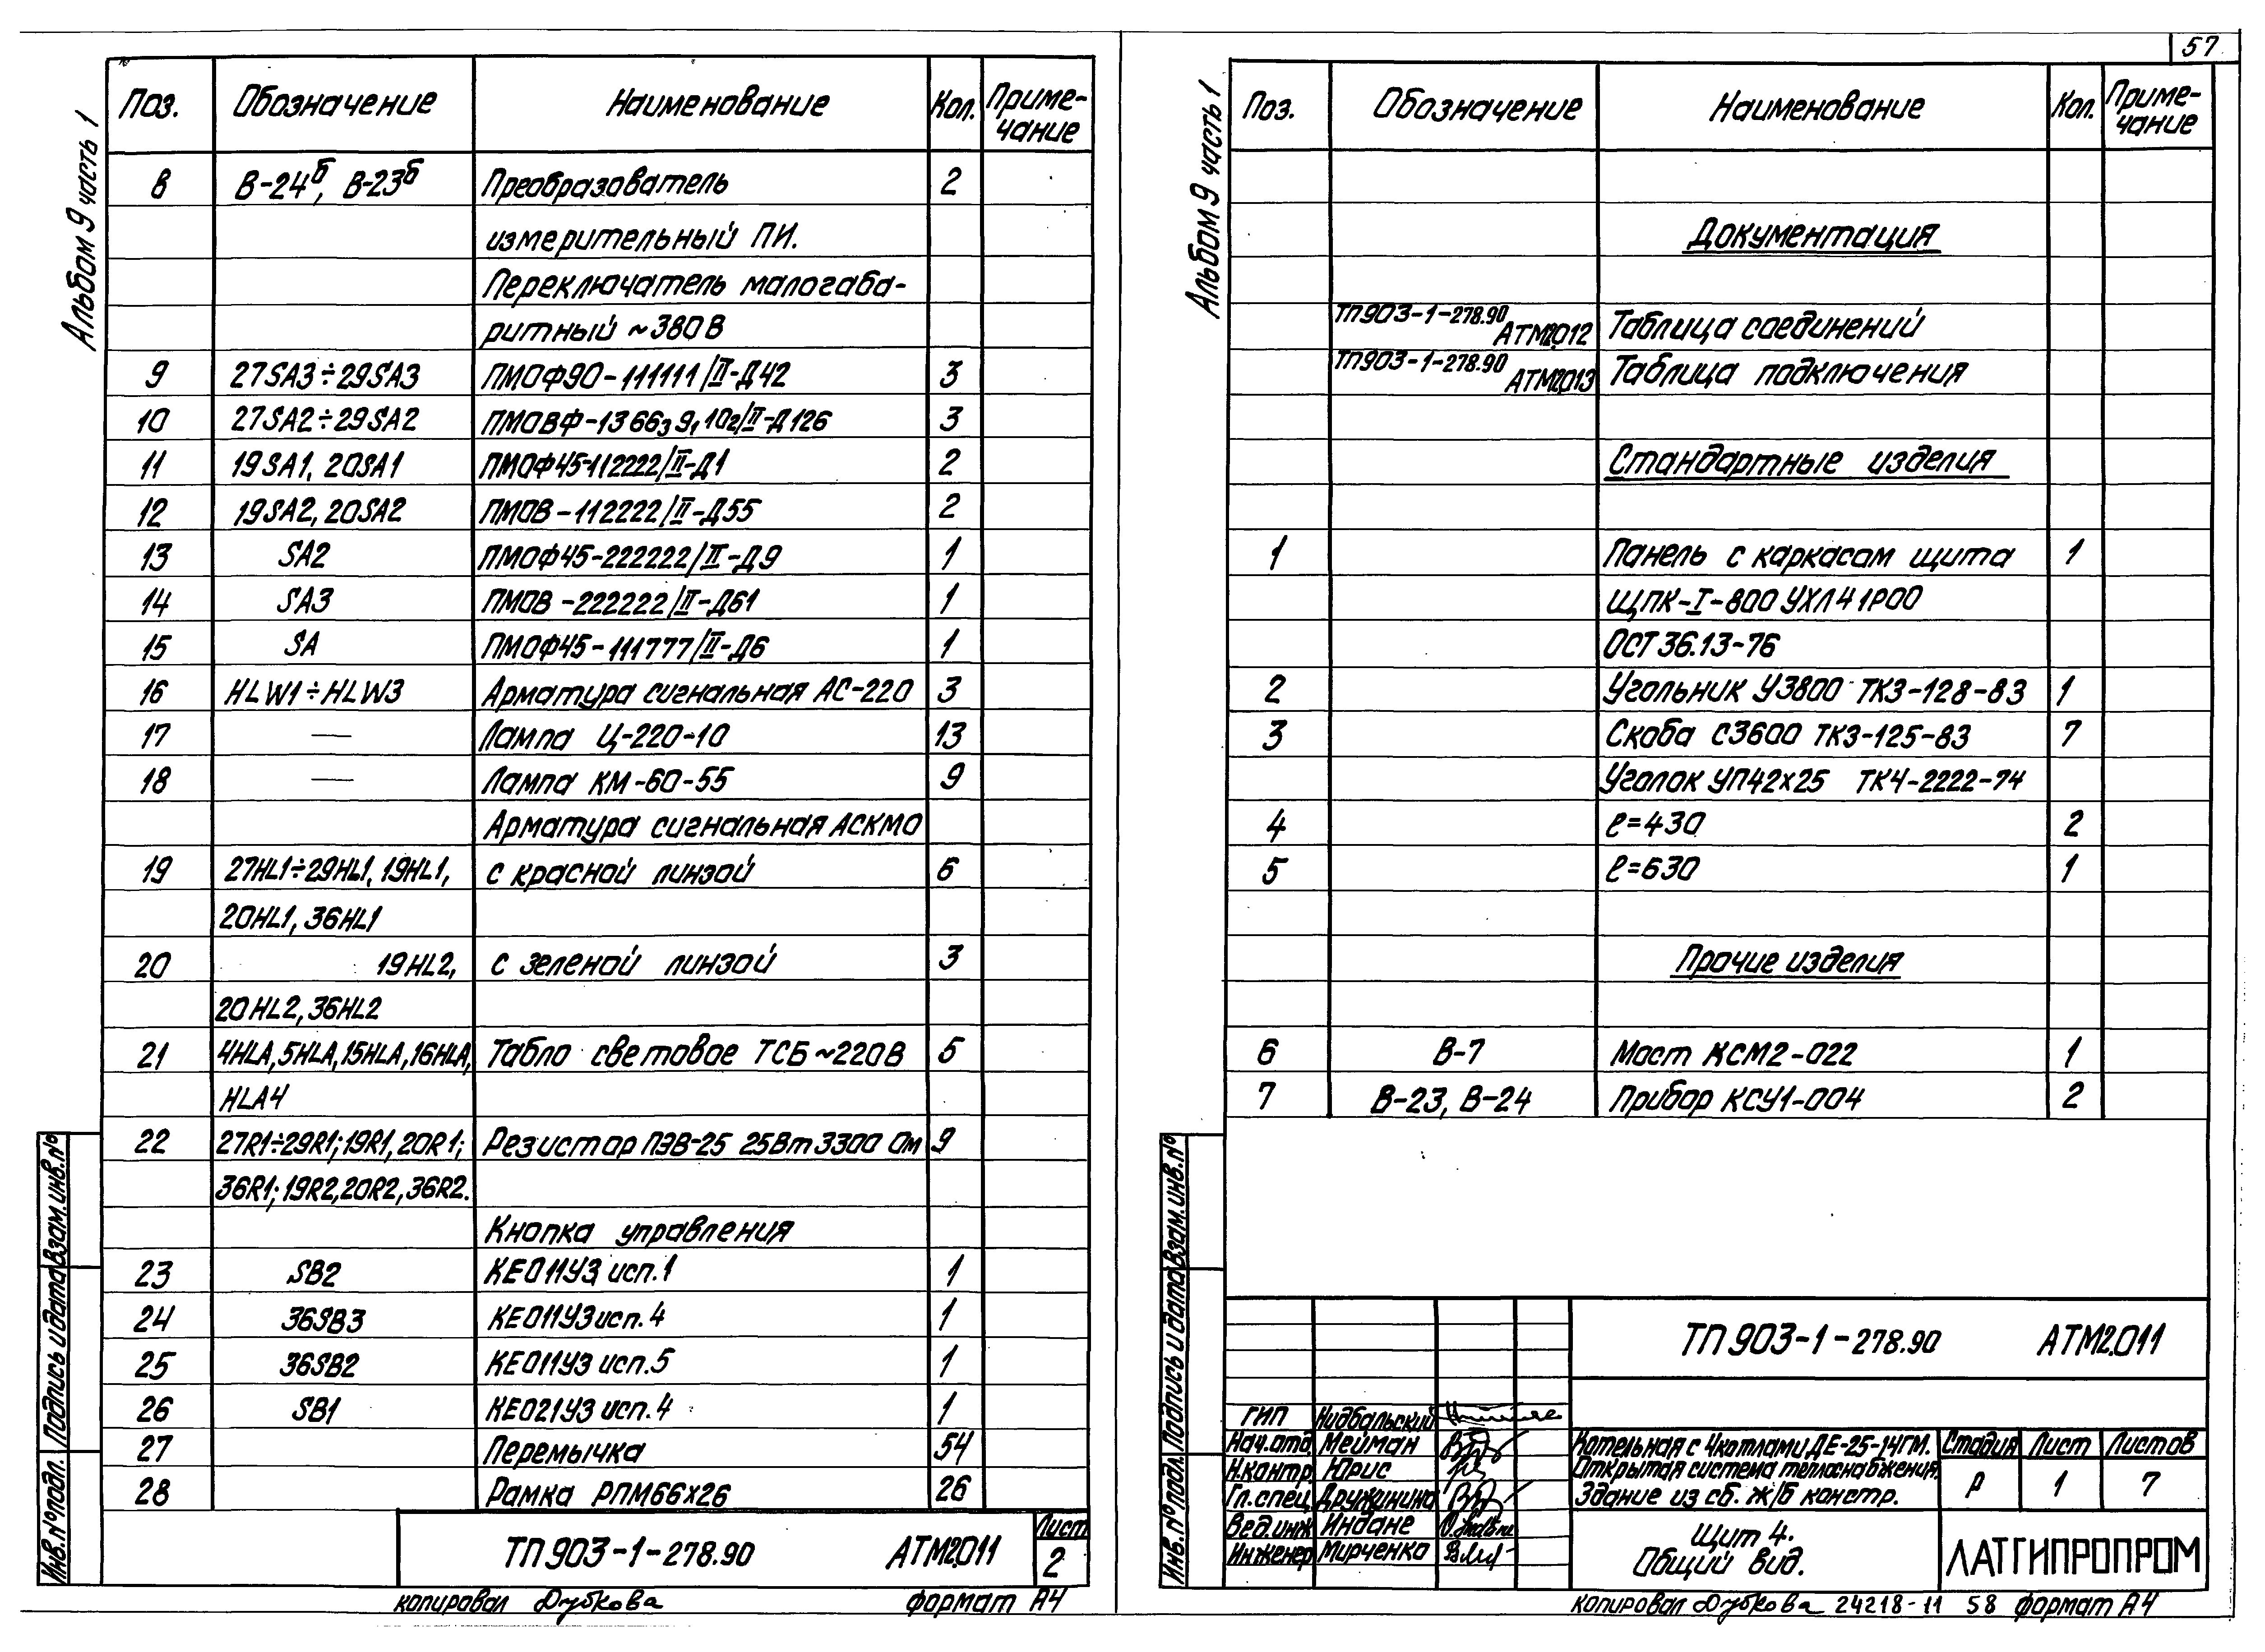 57
Альбом 9 часть 1
Поз. Обозначение Наименование Кол. Приме-
чание
8 В-24б, В-23б Преобразователь 2
измерительный ПИ.
Переключатель малогаба-
ритный ~380В
9 27SA3÷29SA3 ПМОФ90-111111/II-Д42 3
10 27SA2÷29SA2 ПМОВФ-1366₃9,10₂/II-Д126 3
11 19SA1, 20SA1 ПМОФ45-112222/II-Д1 2
12 19SA2, 20SA2 ПМОВ-112222/II-Д55 2
13 SA2 ПМОФ45-222222/II-Д9 1
14 SA3 ПМОВ-222222/II-Д61 1
15 SA ПМОФ45-111777/II-Д6 1
16 HLW1÷HLW3 Арматура сигнальная АС-220 3
17 — Лампа Ц-220-10 13
18 — Лампа КМ-60-55 9
Арматура сигнальная АСКМО
19 27HL1÷29HL1, 19HL1, с красной линзой 6
20HL1, 36HL1
20 19HL2, с зеленой линзой 3
20HL2, 36HL2
21 4HLA, 5HLA, 15HLA, 16HLA, Табло световое ТСБ ~220В 5
HLA4
22 27R1÷29R1; 19R1, 20R1; Резистор ПЭВ-25 25Вт 3300 Ом 9
36R1; 19R2, 20R2, 36R2.
Кнопка управления
23 SB2 КЕ011У3 исп.1 1
24 36SB3 КЕ011У3 исп.4 1
25 36SB2 КЕ011У3 исп.5 1
26 SB1 КЕ021У3 исп.4 1
27 Перемычка 54
28 Рамка РПМ66х26 26
Инв.№подл. Подпись и дата Взам.инв.№
ТП 903-1-278.90 АТМ2.011 Лист
2
копировал Дубкова формат А4
Альбом 9 часть 1
Поз. Обозначение Наименование Кол. Приме-
чание
Документация
ТП903-1-278.90
АТМ2.012 Таблица соединений
ТП903-1-278.90
АТМ2.013 Таблица подключения
Стандартные изделия
1 Панель с каркасом щита 1
ЩПК-I-800 УХЛ4 IР00
ОСТ 36.13-76
2 Угольник У3800 ТК3-128-83 1
3 Скоба С3600 ТК3-125-83 7
Уголок УП42х25 ТК4-2222-74
4 ℓ=430 2
5 ℓ=630 1
Прочие изделия
6 В-7 Мост КСМ2-022 1
7 В-23, В-24 Прибор КСУ1-004 2
Инв.№подл. Подпись и дата Взам.инв.№
ТП 903-1-278.90 АТМ2.011
ГИП Нидбальский
Нач.отд. Мейман
Н.контр. Юрис
Гл.спец. Дружинина
Вед.инж. Индане
Инженер Мирченко
Котельная с 4 котлами ДЕ-25-14ГМ.
Открытая система теплоснабжения.
Здание из сб. ж/б констр.
Стадия Лист Листов
Р 1 7
Щит 4.
Общий вид.
ЛАТГИПРОПРОМ
копировал Дубкова 24218-11 58 формат А4